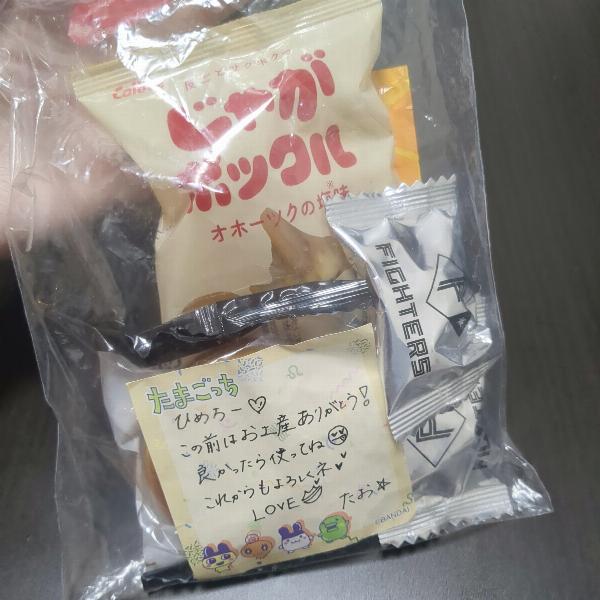 Calbee
じゃが
ポックル
オホーツクの塩味
FIGHTERS
たまごっち
ひめちー♡
この前はお土産ありがとう!
良かったら使ってね
これからもよろしくネ
LOVE
たお☆
©BANDAI